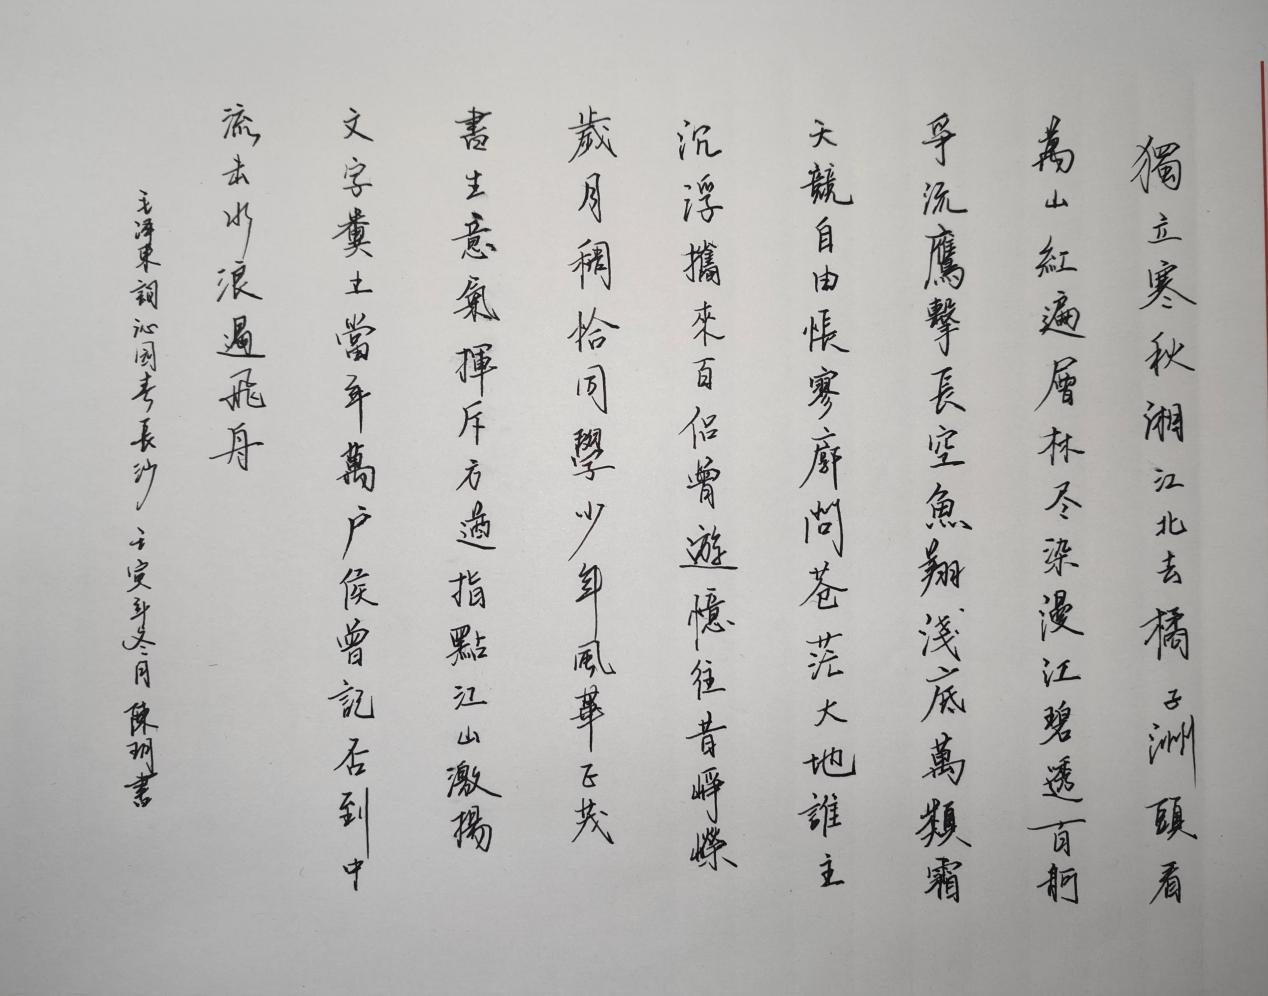 獨立寒秋湘江北去橘子洲頭看
萬山紅遍層林尽染漫江碧透百舸
爭流鷹擊長空魚翔淺底萬類霜
天競自由悵寥廓問苍茫大地誰主
沉浮攜來百侣曾遊憶往昔崢嶸
歲月稠恰同學少年風華正茂
書生意氣揮斥方遒指點江山激揚
文字糞土當年萬户侯曾記否到中
流击水浪遏飛舟
毛泽東詞沁园春長沙壬寅年冬月陳玥書